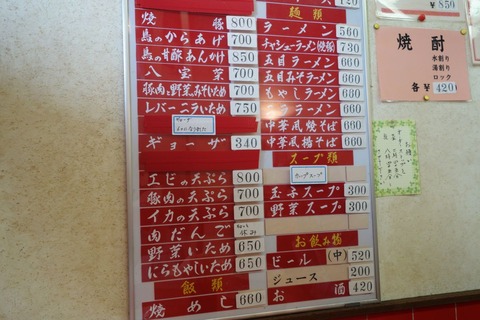 焼豚 800
鳥のからあげ 700
鳥の甘酢あんかけ 850
八宝菜 700
豚肉と野菜みそいため 700
レバーニラいため 750
ギョーザ 340
エビの天ぷら 800
豚肉の天ぷら 700
イカの天ぷら 700
肉だんご
野菜いため 650
にらもやしいため 650
飯類
焼めし 660
120
麺類
ラーメン 560
チャシューメン(焼豚) 730
五目ラーメン 660
五目みそラーメン 660
もやしラーメン 660
ラーメン 660
中華風焼そば 660
中華風揚そば 660
スープ類
玉子スープ 300
野菜スープ 300
お飲み物
ビール (中) 520
ジュース 200
お酒 420
¥850
焼酎
水割り
湯割り
ロック
各¥420